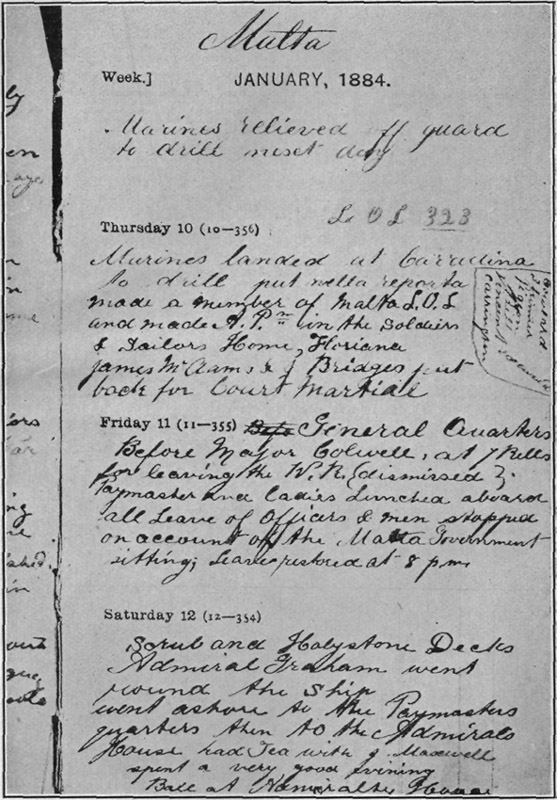 Malta
Week.] JANUARY, 1884.
Marines relieved off guard
to drill next day
L O L 323
Thursday 10 (10—356)
Marines landed at Corradina
to drill put
made a member of Malta L.O.L
and made A. P. in the Soldiers
& Sailors Home, Floriana
James McAams & J Bridges put
back for Court Martial
Friday 11 (11—355) General Quarters
Before Major Colwell, at 7 Bells
for leaving the W.R. {dismissed}.
Paymaster and ladies Lunched aboard
all Leave of Officers & men stopped
on account of the Malta Government
sitting; Leave restored at 8 pm
Saturday 12 (12—354)
Scrub and Holystone Decks
Admiral Graham went
round the Ship
went ashore to the Paymasters
quarters then to the Admirals
House had Tea with J Maxwell
spent a very good evining
Ball at Admiralty House